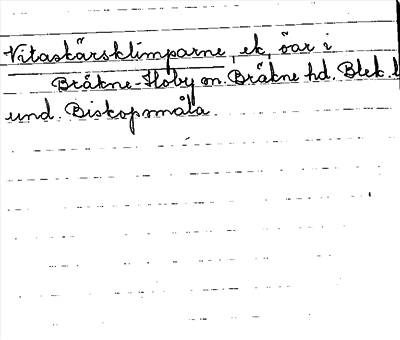 Vitaskärsklimparne, ek, öar i
Bråkne-Hoby sn. Bråkne hd. Blek. l
und. Biskopsmåla.